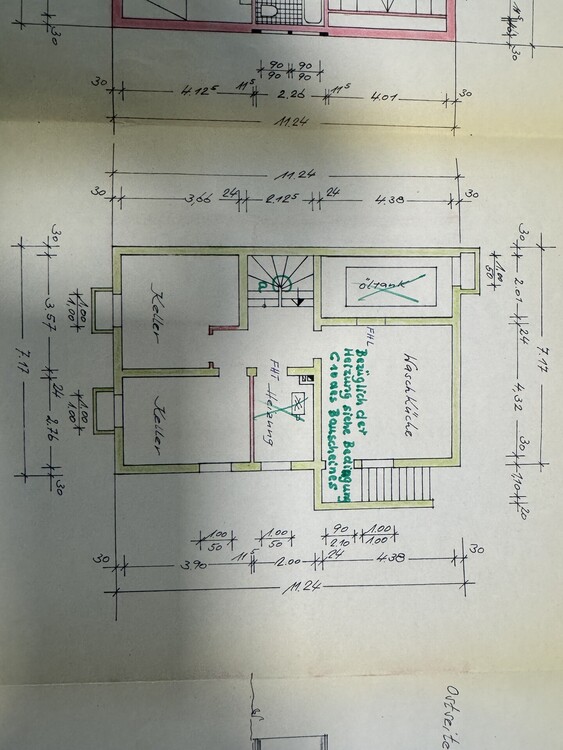 90 90
90 90
30 4.12⁵ 11⁵ 2.26 11⁵ 4.01 30
11.24
11.24
30 3,66 24 2.12⁵ 24 4.38 30
30
3.57
24
2.76
30
7.17
1.00
1.00
1.00
1.00
Keller
Keller
a
Öltank
FHL
Waschküche
FHT Heizung
Bezüglich der
Heizung siehe Bedingung
G 10 des Bauscheines
1.00
50
30
2.01
24
4,32
30
1.10
20
7.17
1.00
50
1.00
50
90
2.10
1.00
1.00
30 3.90 11⁵ 2.00 24 4.38 30
11.24
Ostseite
30
30